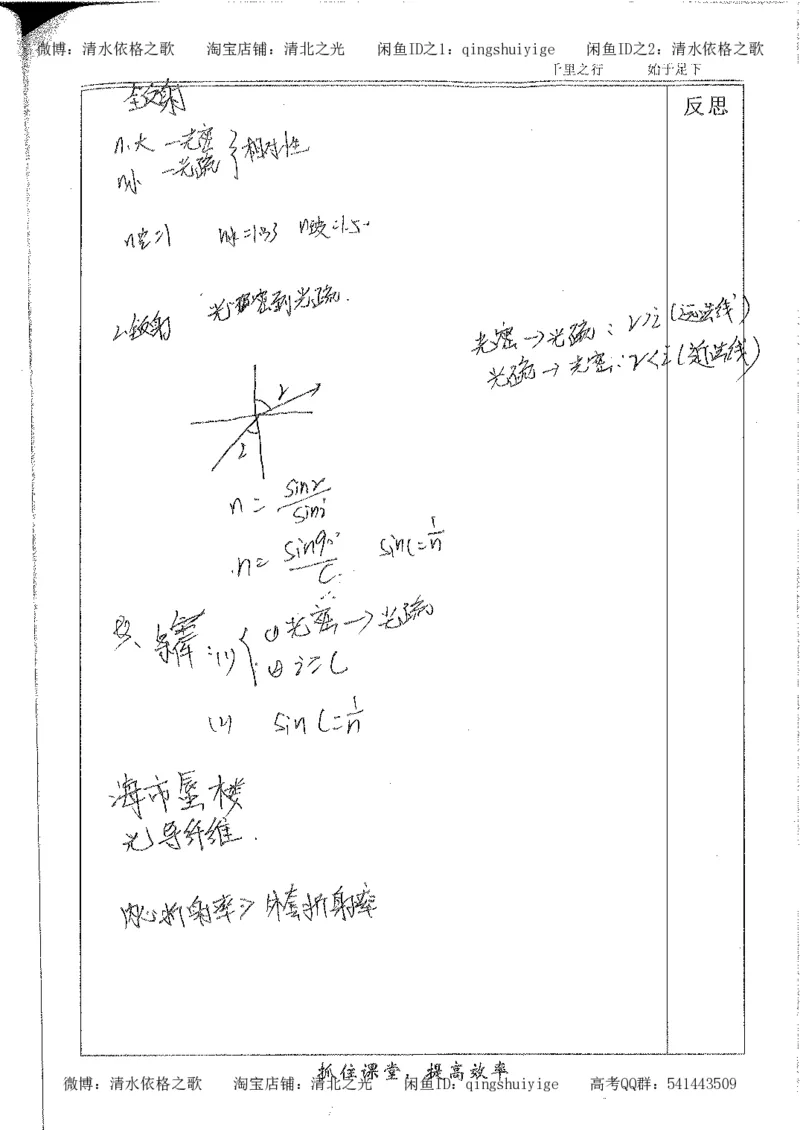 微博：清水依格之歌 淘宝店铺：清北之光 闲鱼ID之1：qingshuiyige 闲鱼ID之2：清水依格之歌
千里之行 始于足下
反思
全反射
n大—光密
n小—光疏 } 相对性
n空=1 n水=1.33 n玻=1.5
2.全反射 光密到光疏.
光密→光疏：r>i(远法线)
光疏→光密：r<i(近法线)
r
i
n=sinr/sini
n=sin90°/C sinC=1/n
条件：(1) { ①光密→光疏
②i≥C
(2) sinC=1/n
海市蜃楼
光导纤维.
内心折射率>外套折射率
抓住课堂，提高效率
微博：清水依格之歌 淘宝店铺：清北之光 闲鱼ID：qingshuiyige 高考QQ群：541443509